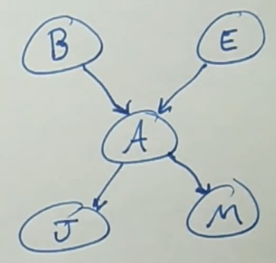 B E
A
J M